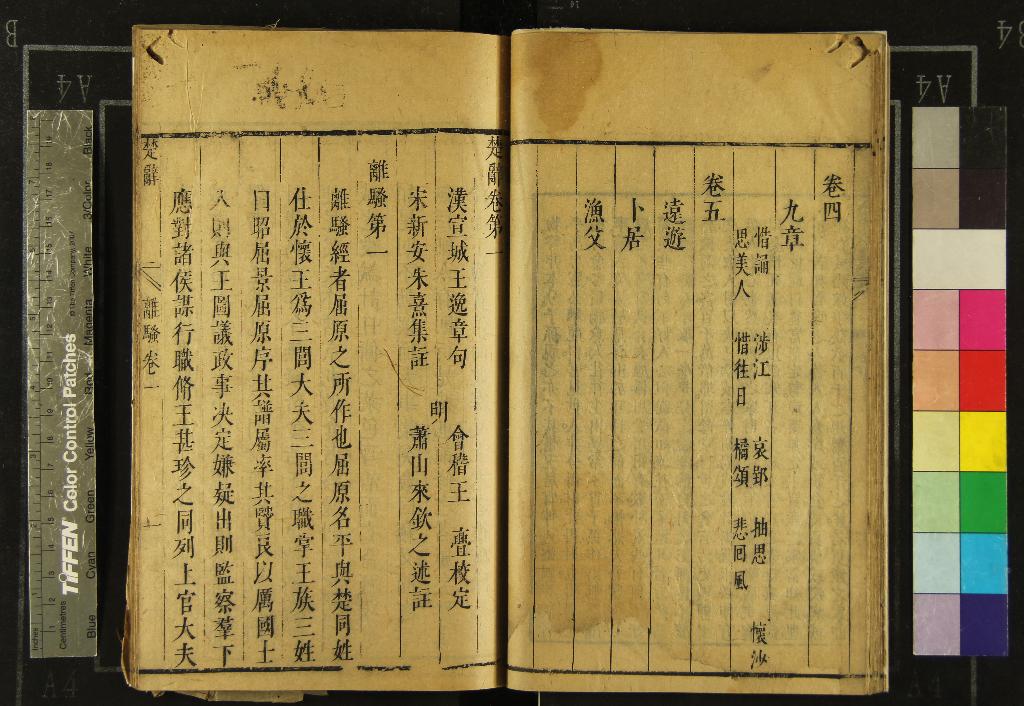 卷四
九章
惜誦 涉江 哀郢 抽思 懷沙
思美人 惜往日 橘頌 悲回風
卷五
遠遊
卜居
漁父
楚辭卷第一
漢宣城王逸章句
宋新安朱熹集註
明
會稽王 亹校定
蕭山來欽之述註
離騷第一
離騷經者屈原之所作也屈原名平與楚同姓
仕於懷王爲三閭大夫三閭之職掌王族三姓
曰昭屈景屈原序其譜屬率其賢良以厲國士
入則與王圖議政事决定嫌疑出則監察羣下
應對諸侯謀行職脩王甚珍之同列上官大夫
楚辭
離騷卷一
一
B
A4
A4
B4
A4
Inches
Centimetres
TIFFEN Color Control Patches
Blue
Cyan
Green
Yellow
Red
Magenta
White
3/Color
Black